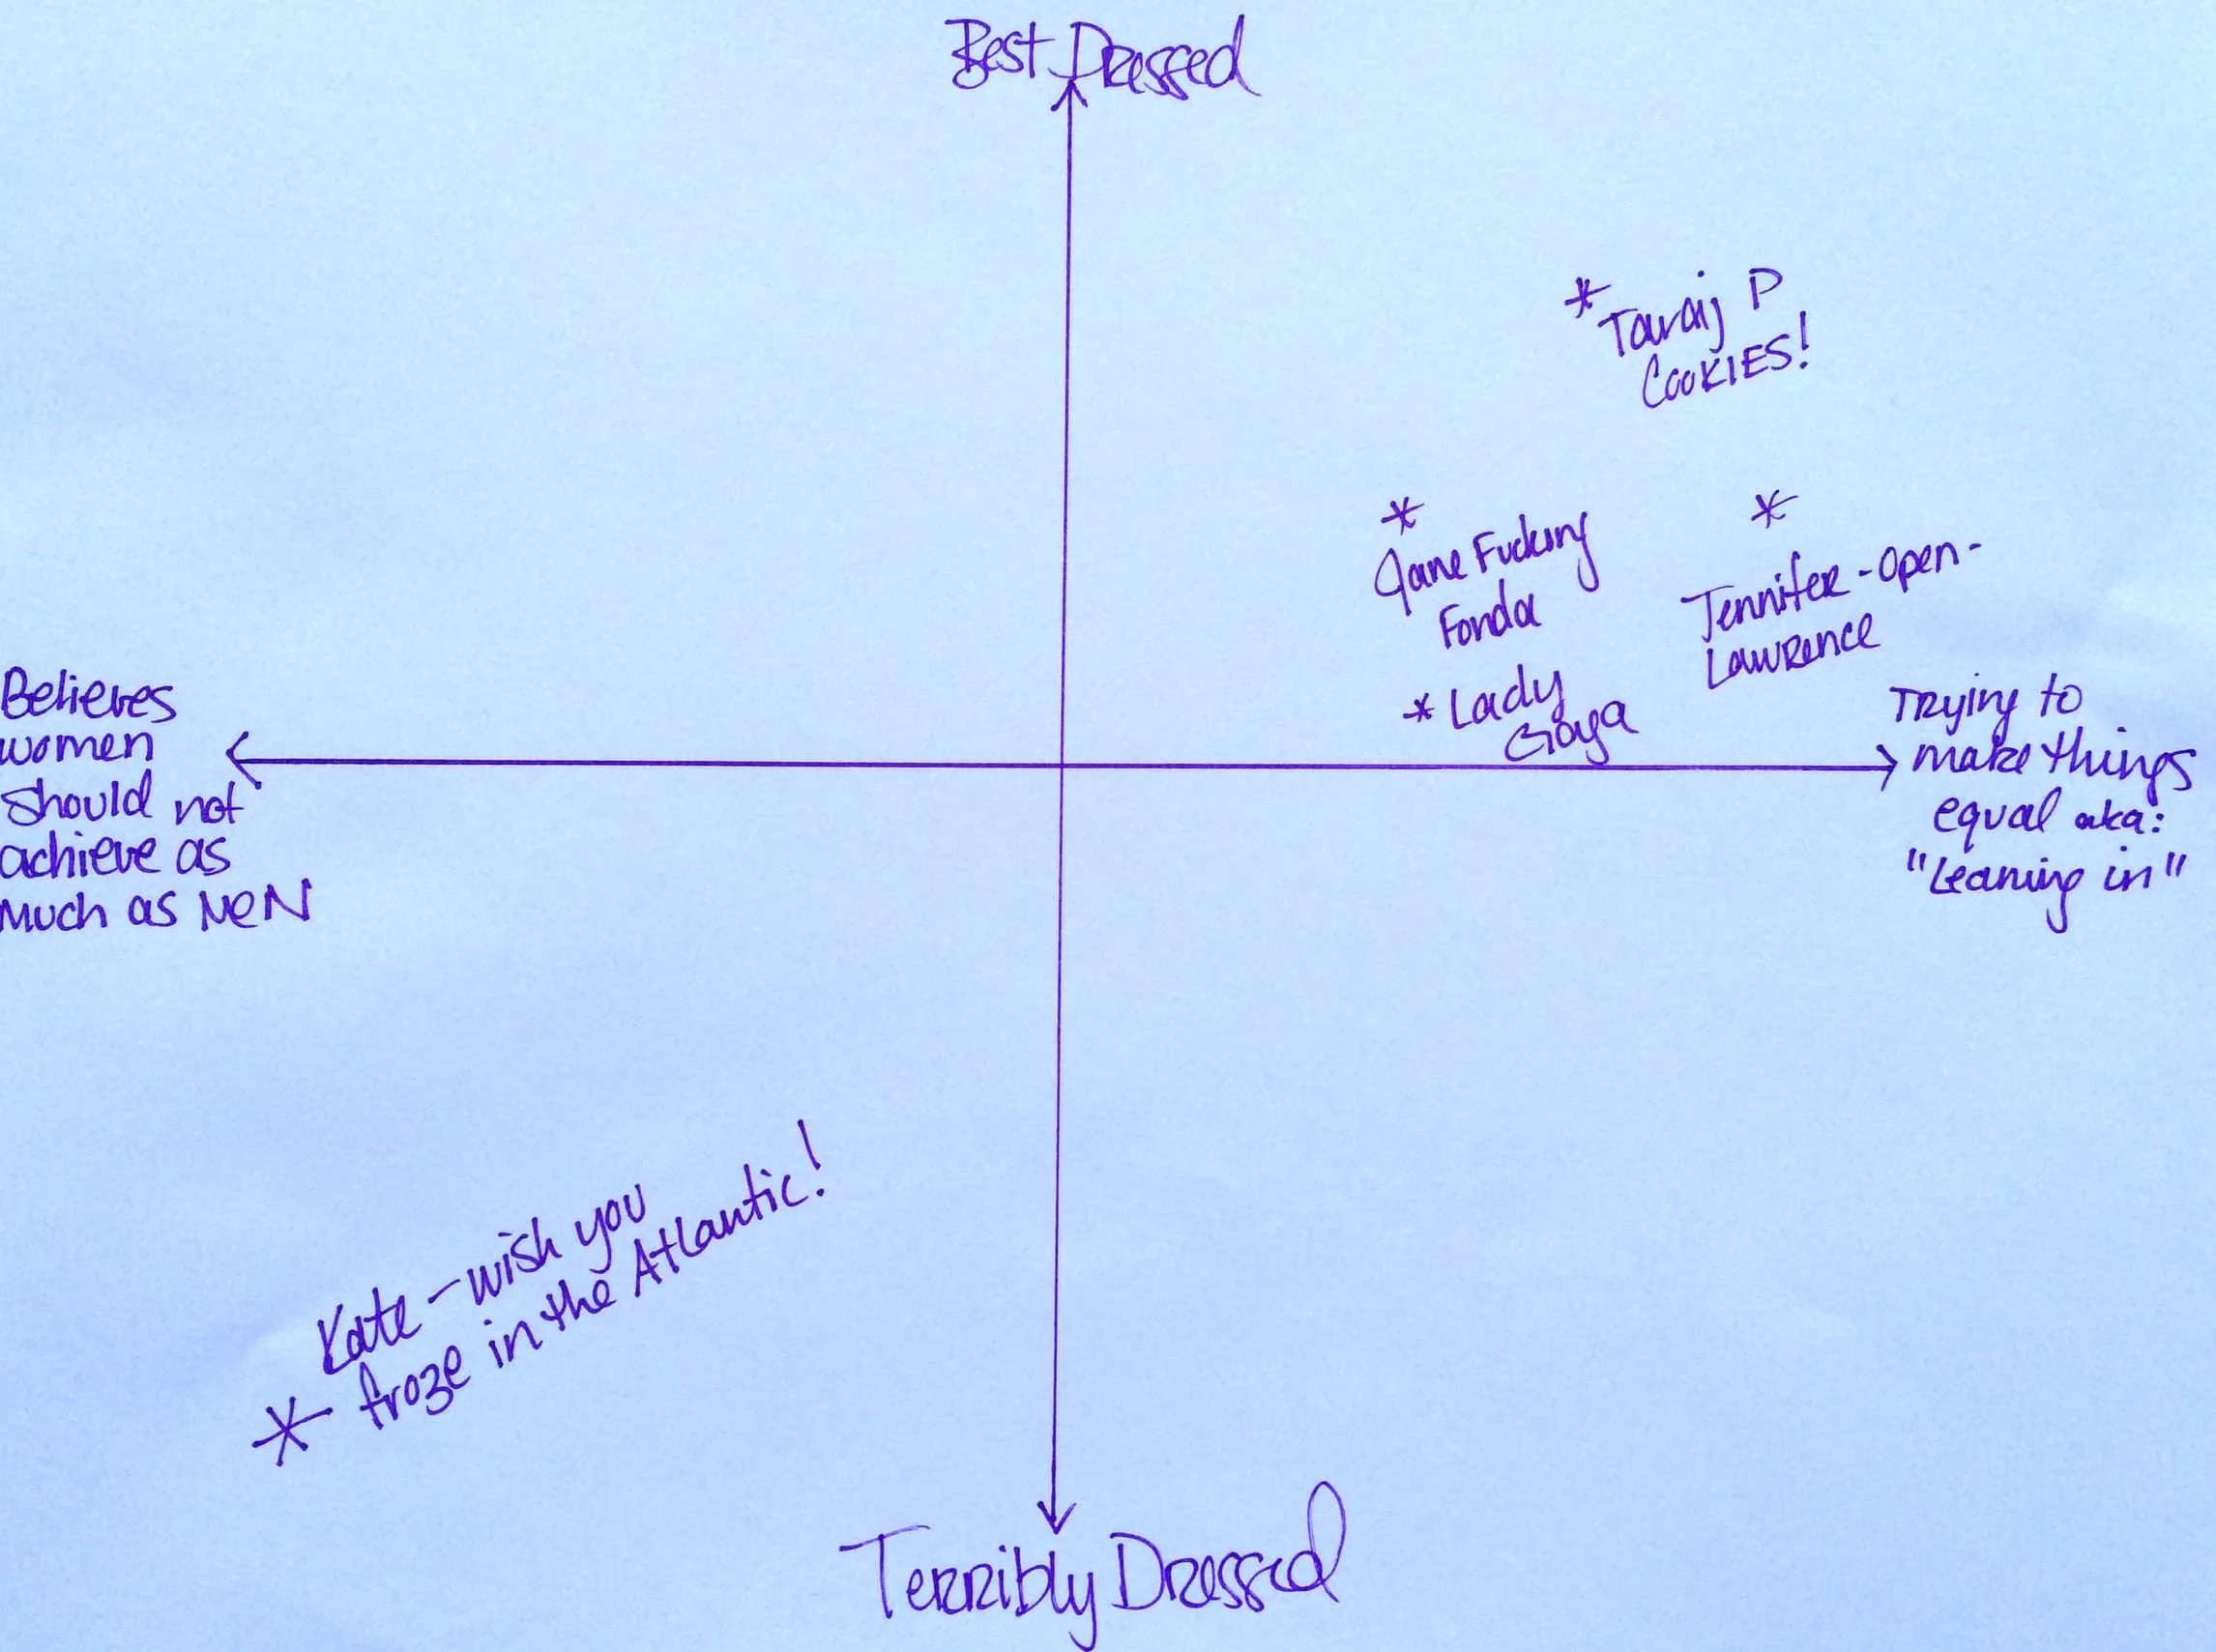 Best Dressed
* Taraij P
COOKIES!
*
Jane Fucking
Fonda
*
Jennifer-Open-
Lawrence
* Lady
Gaga
Believes
women
should not
achieve as
much as MEN
Trying to
make things
equal aka:
"Leaning in"
Kate - wish you
* froze in the Atlantic!
Terribly Dressed